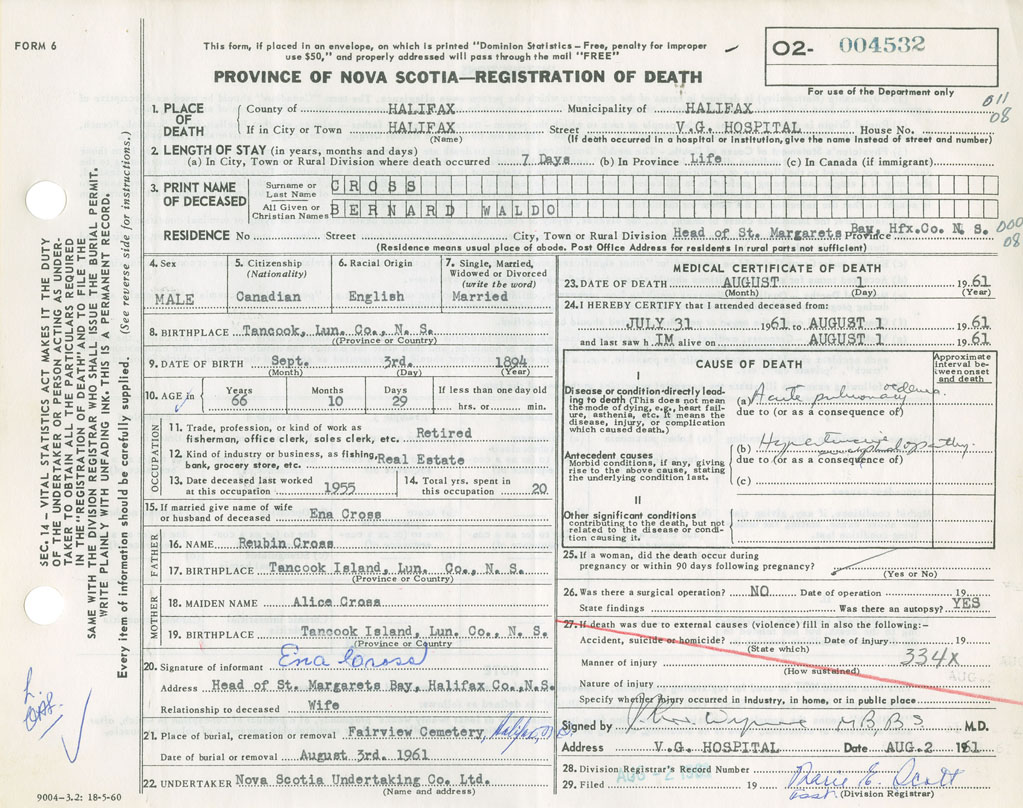 FORM 6
This form, if placed in an envelope, on which is printed "Dominion Statistics – Free, penalty for improper
use $50," and properly addressed will pass through the mail "FREE"
O2- 004532
For use of the Department only
PROVINCE OF NOVA SCOTIA—REGISTRATION OF DEATH
011
08
1. PLACE OF DEATH
County of HALIFAX Municipality of HALIFAX
If in City or Town HALIFAX Street V.G. HOSPITAL House No.
(Name) (If death occurred in a hospital or institution, give the name instead of street and number)
2. LENGTH OF STAY (in years, months and days)
(a) In City, Town or Rural Division where death occurred 7 Days (b) In Province Life (c) In Canada (if immigrant)
3. PRINT NAME OF DECEASED
Surname or Last Name CROSS
All Given or Christian Names BERNARD WALDO
RESIDENCE No Street City, Town or Rural Division Head of St. Margarets Bay, Hfx.Co. N. S. Province
000
08
(Residence means usual place of abode. Post Office Address for residents in rural parts not sufficient)
4. Sex
MALE
5. Citizenship
(Nationality)
Canadian
6. Racial Origin
English
7. Single, Married,
Widowed or Divorced
(write the word)
Married
8. BIRTHPLACE Tancook, Lun. Co., N. S.
(Province or Country)
9. DATE OF BIRTH Sept. 3rd. 1894
(Month) (Day) (Year)
10. AGE in
Years 66
Months 10
Days 29
If less than one day old
hrs. or min.
OCCUPATION
11. Trade, profession, or kind of work as
fisherman, office clerk, sales clerk, etc. Retired
12. Kind of industry or business, as fishing,
bank, grocery store, etc. Real Estate
13. Date deceased last worked
at this occupation 1955
14. Total yrs. spent in
this occupation 20
15. If married give name of wife
or husband of deceased Ena Cross
FATHER
16. NAME Reubin Cross
17. BIRTHPLACE Tancook Island, Lun. Co., N. S.
(Province or Country)
MOTHER
18. MAIDEN NAME Alice Cross
19. BIRTHPLACE Tancook Island, Lun. Co., N. S.
(Province or Country)
20. Signature of informant Ena Cross
Address Head of St. Margarets Bay, Halifax Co., N.S.
Relationship to deceased Wife
21. Place of burial, cremation or removal Fairview Cemetery, Halifax, N.S.
Date of burial or removal August 3rd. 1961
22. UNDERTAKER Nova Scotia Undertaking Co. Ltd.
(Name and address)
MEDICAL CERTIFICATE OF DEATH
23. DATE OF DEATH AUGUST 1 1961
(Month) (Day) (Year)
24. I HEREBY CERTIFY that I attended deceased from:
JULY 31 1961 to AUGUST 1 1961
and last saw h IM alive on AUGUST 1 1961
CAUSE OF DEATH
Approximate interval between onset and death
I
Disease or condition directly leading to death (This does not mean
the mode of dying, e.g., heart failure, asthenia, etc. It means the
disease, injury, or complication
which caused death.)
(a) Acute pulmonary oedema
due to (or as a consequence of)
Antecedent causes
Morbid conditions, if any, giving
rise to the above cause, stating
the underlying condition last.
(b) Hypertensive encephalopathy.
due to (or as a consequence of)
(c)
II
Other significant conditions
contributing to the death, but not
related to the disease or condition causing it.
25. If a woman, did the death occur during
pregnancy or within 90 days following pregnancy?
(Yes or No)
26. Was there a surgical operation? NO Date of operation 19
State findings Was there an autopsy? YES
27. If death was due to external causes (violence) fill in also the following:-
Accident, suicide or homicide? Date of injury 19
(State which)
Manner of injury 334X
(How sustained)
Nature of injury
Specify whether injury occurred in industry, in home, or in public place
Signed by M.B., B.S. M.D.
Address V.G. HOSPITAL Date AUG.2 1961
28. Division Registrar's Record Number
29. Filed AUG - 2 19 Marie E. Scott
asst. (Division Registrar)
SEC. 14 – VITAL STATISTICS ACT MAKES IT THE DUTY
OF THE UNDERTAKER OR PERSON ACTING AS UNDER-
TAKER TO OBTAIN ALL THE PARTICULARS REQUIRED
IN THE "REGISTRATION OF DEATH" AND TO FILE THE
SAME WITH THE DIVISION REGISTRAR WHO SHALL ISSUE THE BURIAL PERMIT.
WRITE PLAINLY WITH UNFADING INK. THIS IS A PERMANENT RECORD.
Every item of information should be carefully supplied. (See reverse side for instructions.)
9004-3.2: 18-5-60